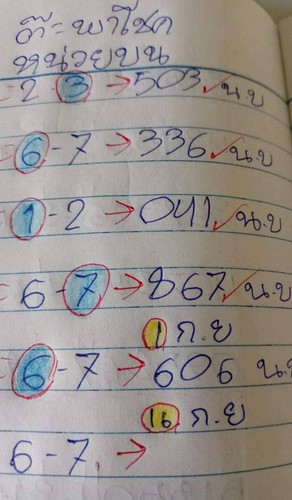 ต๊ะพาโชค
หน่วยบน
= 2 - 3 → 503 ✓ น.บ
= 6 - 7 → 336 ✓ น.บ
= 1 - 2 → 041 ✓ น.บ
= 6 - 7 → 867 ✓ น.บ
1 ก.ย
= 6 - 7 → 606 น.
16 ก.ย
6 - 7. →